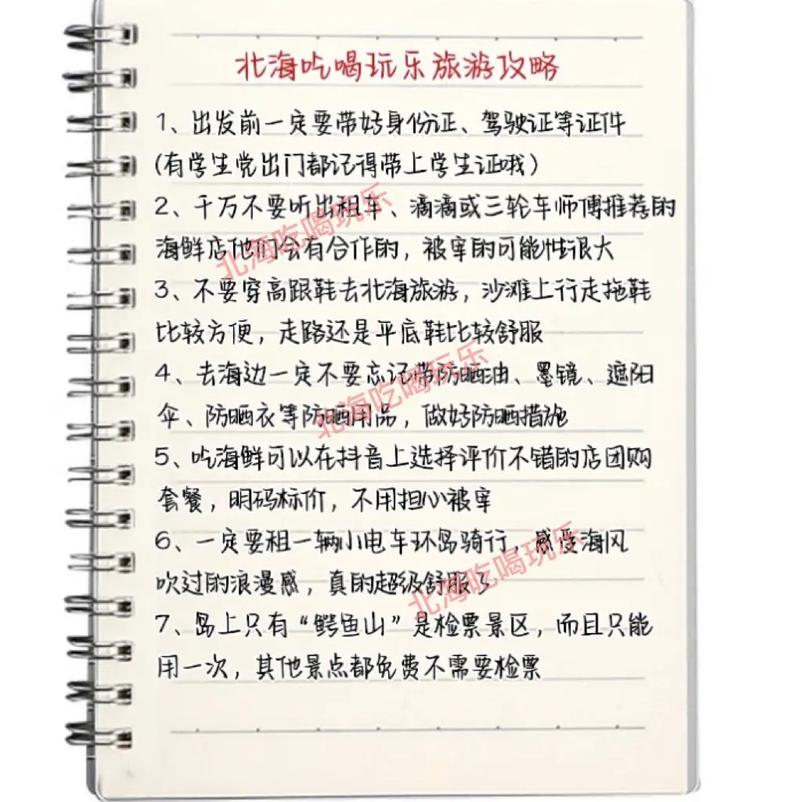 北海吃喝玩乐旅游攻略
1、出发前一定要带好身份证、驾驶证等证件
(有学生党出门都记得带上学生证哦)
2、千万不要听出租车、滴滴或三轮车师傅推荐的
海鲜店他们会有合作的，被宰的可能性很大
3、不要穿高跟鞋去北海旅游，沙滩上行走拖鞋
比较方便，走路还是平底鞋比较舒服
4、去海边一定不要忘记带防晒油、墨镜、遮阳
伞、防晒衣等防晒用品，做好防晒措施
5、吃海鲜可以在抖音上选择评价不错的店团购
套餐，明码标价，不用担心被宰
6、一定要租一辆小电车环岛骑行，感受海风
吹过的浪漫感，真的超级舒服了
7、岛上只有“鳄鱼山”是检票景区，而且只能
用一次，其他景点都免费不需要检票
北海吃喝玩乐
北海吃喝玩乐
北海吃喝玩乐